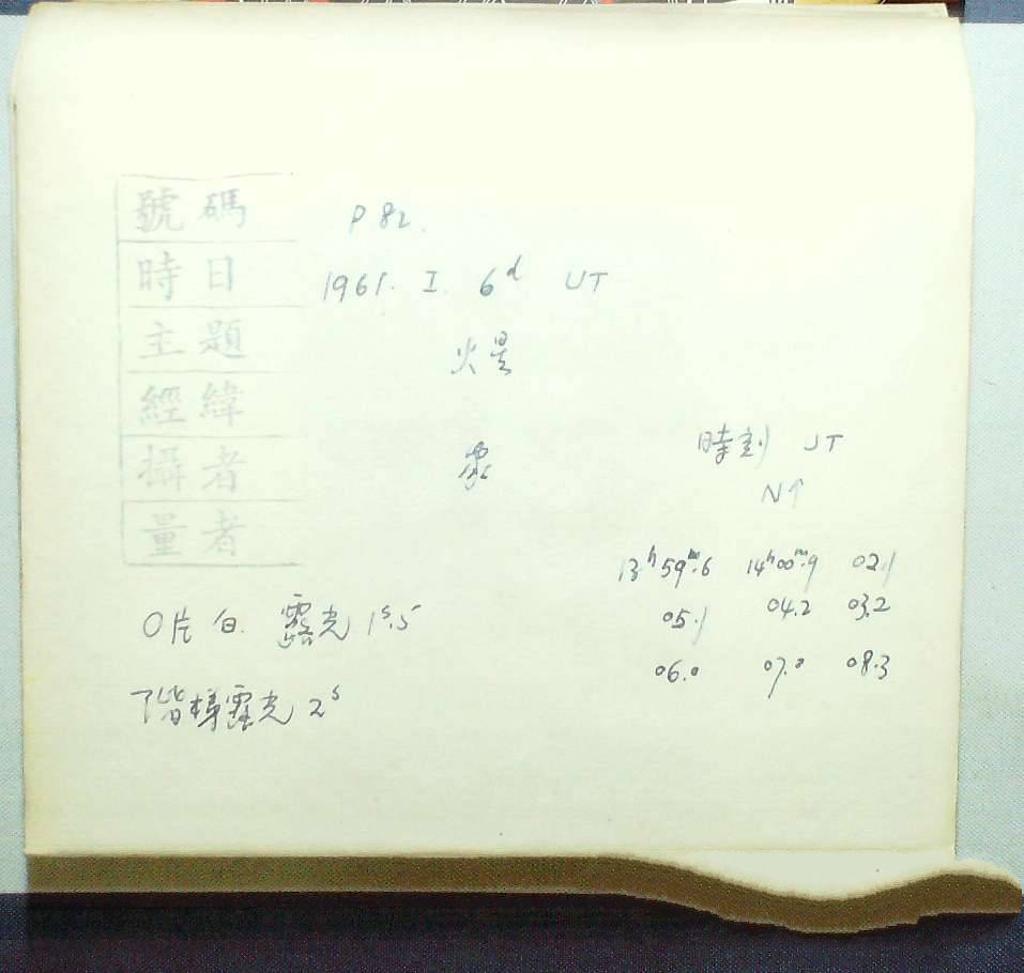 號碼 P 82.
時日 1961. I. 6ᵈ UT
主題 火星
經緯
攝者 眾
量者
時刻 UT
N↑
13ʰ59ᵐ.6 14ʰ00ᵐ.9 02.1
05.1 04.2 03.2
06.0 07.0 08.3
O片 白. 露光 1ˢ.5
階梯露光 2ˢ